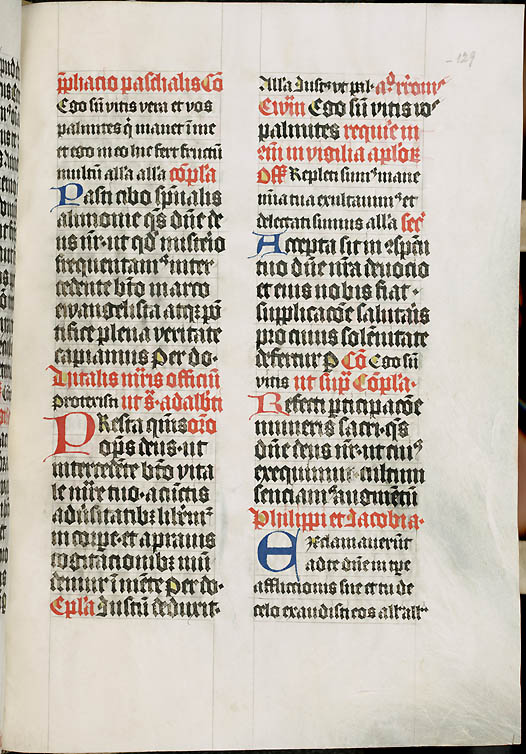 -129
p̄phacio paschalis Cō
Ego sū vitis vera et vos
palmites q̇ manet ī me
et ego in eo hic fert fructū
multū all'a all'a cōpl'a
Pasti cibo sp̄ualis
alimonie q̄s dn̄e de
us nr̄ ut qd̄ misterio
frequentam⁹ inter
cedente bt̄o marco
ewangelista atq̄ꝫ pō
tifice plena veritate
capiamus Per do·
Vitalis m̄ris officiū
Protexisti ut s· adalbti
PResta q̄mus or̄o
op̄s deus· ut
intercedēte bt̄o vita
le m̄re tuo· a cūctis
adūsitatibꝫ liberem²
in corpe· et a prauis
cogitacionibꝫ mū
demur ī mēte Per do·
Epl'a Iustū deduxit·
All'a Iust⁹ ut pal·
Ewm̄ Ego sū vitis vᵒ
palmites requiꝛe in
in vigilia apl'oꝝ
Off Repleti sum⁹ mane
mīa tua exultauim⁹ et
delectati sumus all'a secᵗ
Accepta sit in ꝯspectu
tuo dn̄e nr̄a deuocio
et eius nobis fiat·
supplicacōe salutaris
pro cuius solēnitate
defertur P Cō Ego sū
vitis ut supᵃ Cōpl'a·
Refecti pticipacōe
muneris sacri· q̄s
dn̄e deus nr̄· ut cui⁹
exequimur· cultum
senciam⁹ augmētū
Philippi et Iacobi a·
Exclamauerūt
ad te dn̄e in tpe
afflictionis sue et tu de
celo exaudisti eos all'all'